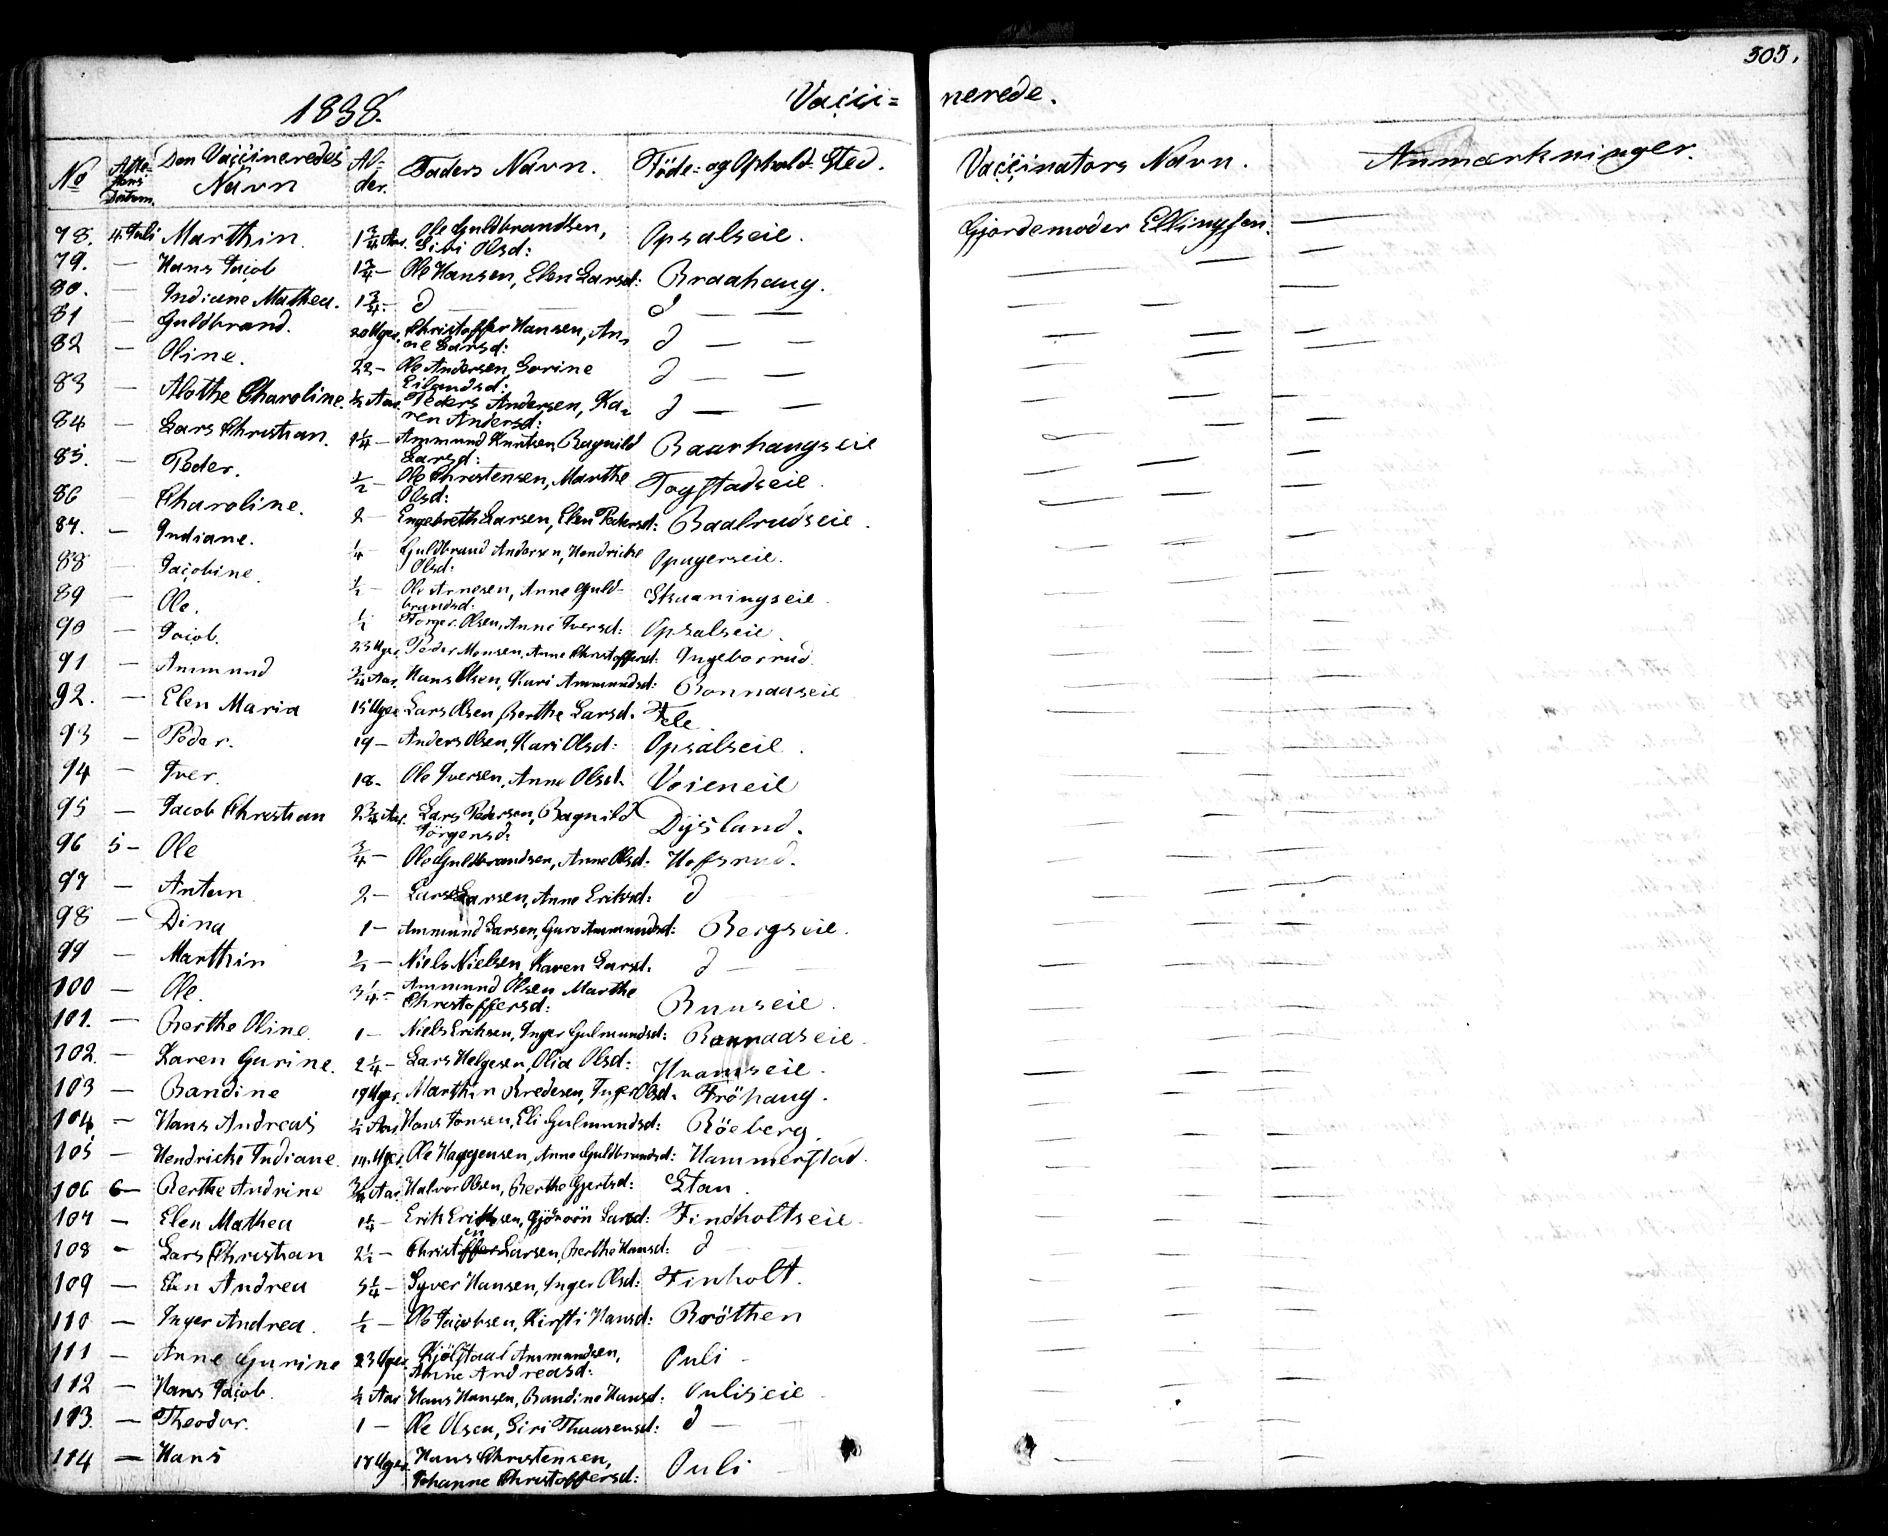 303.
1838. Vacci= nerede.
No Atte-stens Datum. Den Vaccineredes Navn Al-der. Faders Navn. Föde- og Ophold-Sted. Vaccinators Navn. Anmærkninger.
78. 4. Juli Marthin. 1 3/4 Aar. Ole Guldbrandsen, Siri Olsd: Opsalseie. Gjordemoder Ellingsen. —
79. — Hans Jacob 1 3/4 — Ole Hansen, Elen Larsd: Braahaug. — — —
80. — Indiane Mathea. 1 3/4 — d — d — — — — —
81 — Guldbrand. 20 Uger. Christoffer Hansen, Anne Larsd: d — — — — —
82 — Oline. 22 — Ole Andersen, Sorine Eilendsd: d — — — — —
83 — Alethe Charoline. 1/2 Aar. Peders Andersen, Karen Andersd: d — — — — —
84 — Lars Christian. 1 1/4 — Ammund Knutsen, Ragnild Larsd: Baarhaugseie — — —
85. — Peder. 1/2 — Ole Christensen, Marthe Olsd: Togstadseie. — — —
86 — Charoline. 2 — Engebreth Larsen, Elen Pedersd: Baalrudseie. — — —
87. — Indiane. 1/4 — Guldbrand Andersen, Hendrikke Olsd: Opagerseie. — — —
88 — Jacobine. 1/2 — Ole Arnesen, Anne Guldbrandsd: Skraaningseie. — — —
89 — Ole. 1/2 Torger Olsen, Anne Iversd: Opsalseie. — — —
90 — Jacob. 23 Uger Peder Monsen, Anne Christoffersd: Ingeborrud. — — —
91 — Ammund 3/4 Aar. Hans Olsen, Kari Ammundsd: Ronnaaseie — — —
92. — Elen Maria 15 Uger Lars Olsen Berthe Larsd. — — —
93 — Peder. 19 — Anders Olsen, Kari Olsd: Opsalseie. — —
94 — Iver. 18. Ole Iversen, Anne Olsd. Voieneie — — —
95 — Jacob Christian 2 3/4 Aar. Lars Pedersen, Ragnild Jörgensd: Dÿsland. — — —
96 5 — Ole 3/4 — Ole Guldbrandsen, Anne Olsd: Hofsrud. — — —
97 — Anton 2 — Lars Larsen, Anne Eriksd: d — — —
98 — Dina 1 — Ammund Larsen, Guro Ammundsd: Bergseie. — — —
99 — Marthin 1/2 — Niels Nielsen, Karen Larsd. d — — — —
100 — Ole. 3 1/4 — Ammund Olsen Marthe Christoffersd: Ruuseie. — — —
101. — Berthe Oline. 1 — Niels Eriksen, Inger Gulmundsd: Ronnaaseie. — — —
102. — Karen Gurine. 2 1/4 — Lars Helgesen, Olia Olsd: Hvamseie. — — —
103 — Bandine 19 Uger Marthin Bredesen, Inger Olsd. Fröhaug. — — —
104 — Hans Andreas 1/2 Aar Hans Jonsen, Eli Gulmundsd: Röeberg. — — —
105 — Hendrikke Indiane. 14. Uger. Ole Haagensen, Anne Guldbrandsd: Hammerstad. — — —
106 6 — Berthe Andrine 3/4 Aar Halvor Olsen, Berthe Gjertsd: — — —
107 — Elen Mathea 1 1/4 — Erik Eriksen, Gjöroön Larsd: Findholtseie. — — —
108 — Lars Christian 2 1/2 — Christen Larsen, Berthe Hansd: d — — —
109 — Elen Andrea 5 1/4 — Syver Hansen, Inger Olsd: Finholt. — — —
110 — Inger Andrea. 1/2 — Ole Jacobsen, Kirsti Hansd: Bröthen — — —
111 — Anne Gurine 23 Uger Kjölstaal Ammundsen, Anne Andreasd: Puli — — —
112 — Hans Jacob. 1/2 Aar Hans Hansen, Bandine Hansd: Puliseie — — —
113. — Theodor. 1 — Ole Olsen, Siri Thuresensd: d — — — —
114 — Hans 17 Uger Hans Christensen, Johanne Christoffersd: Puli — — —